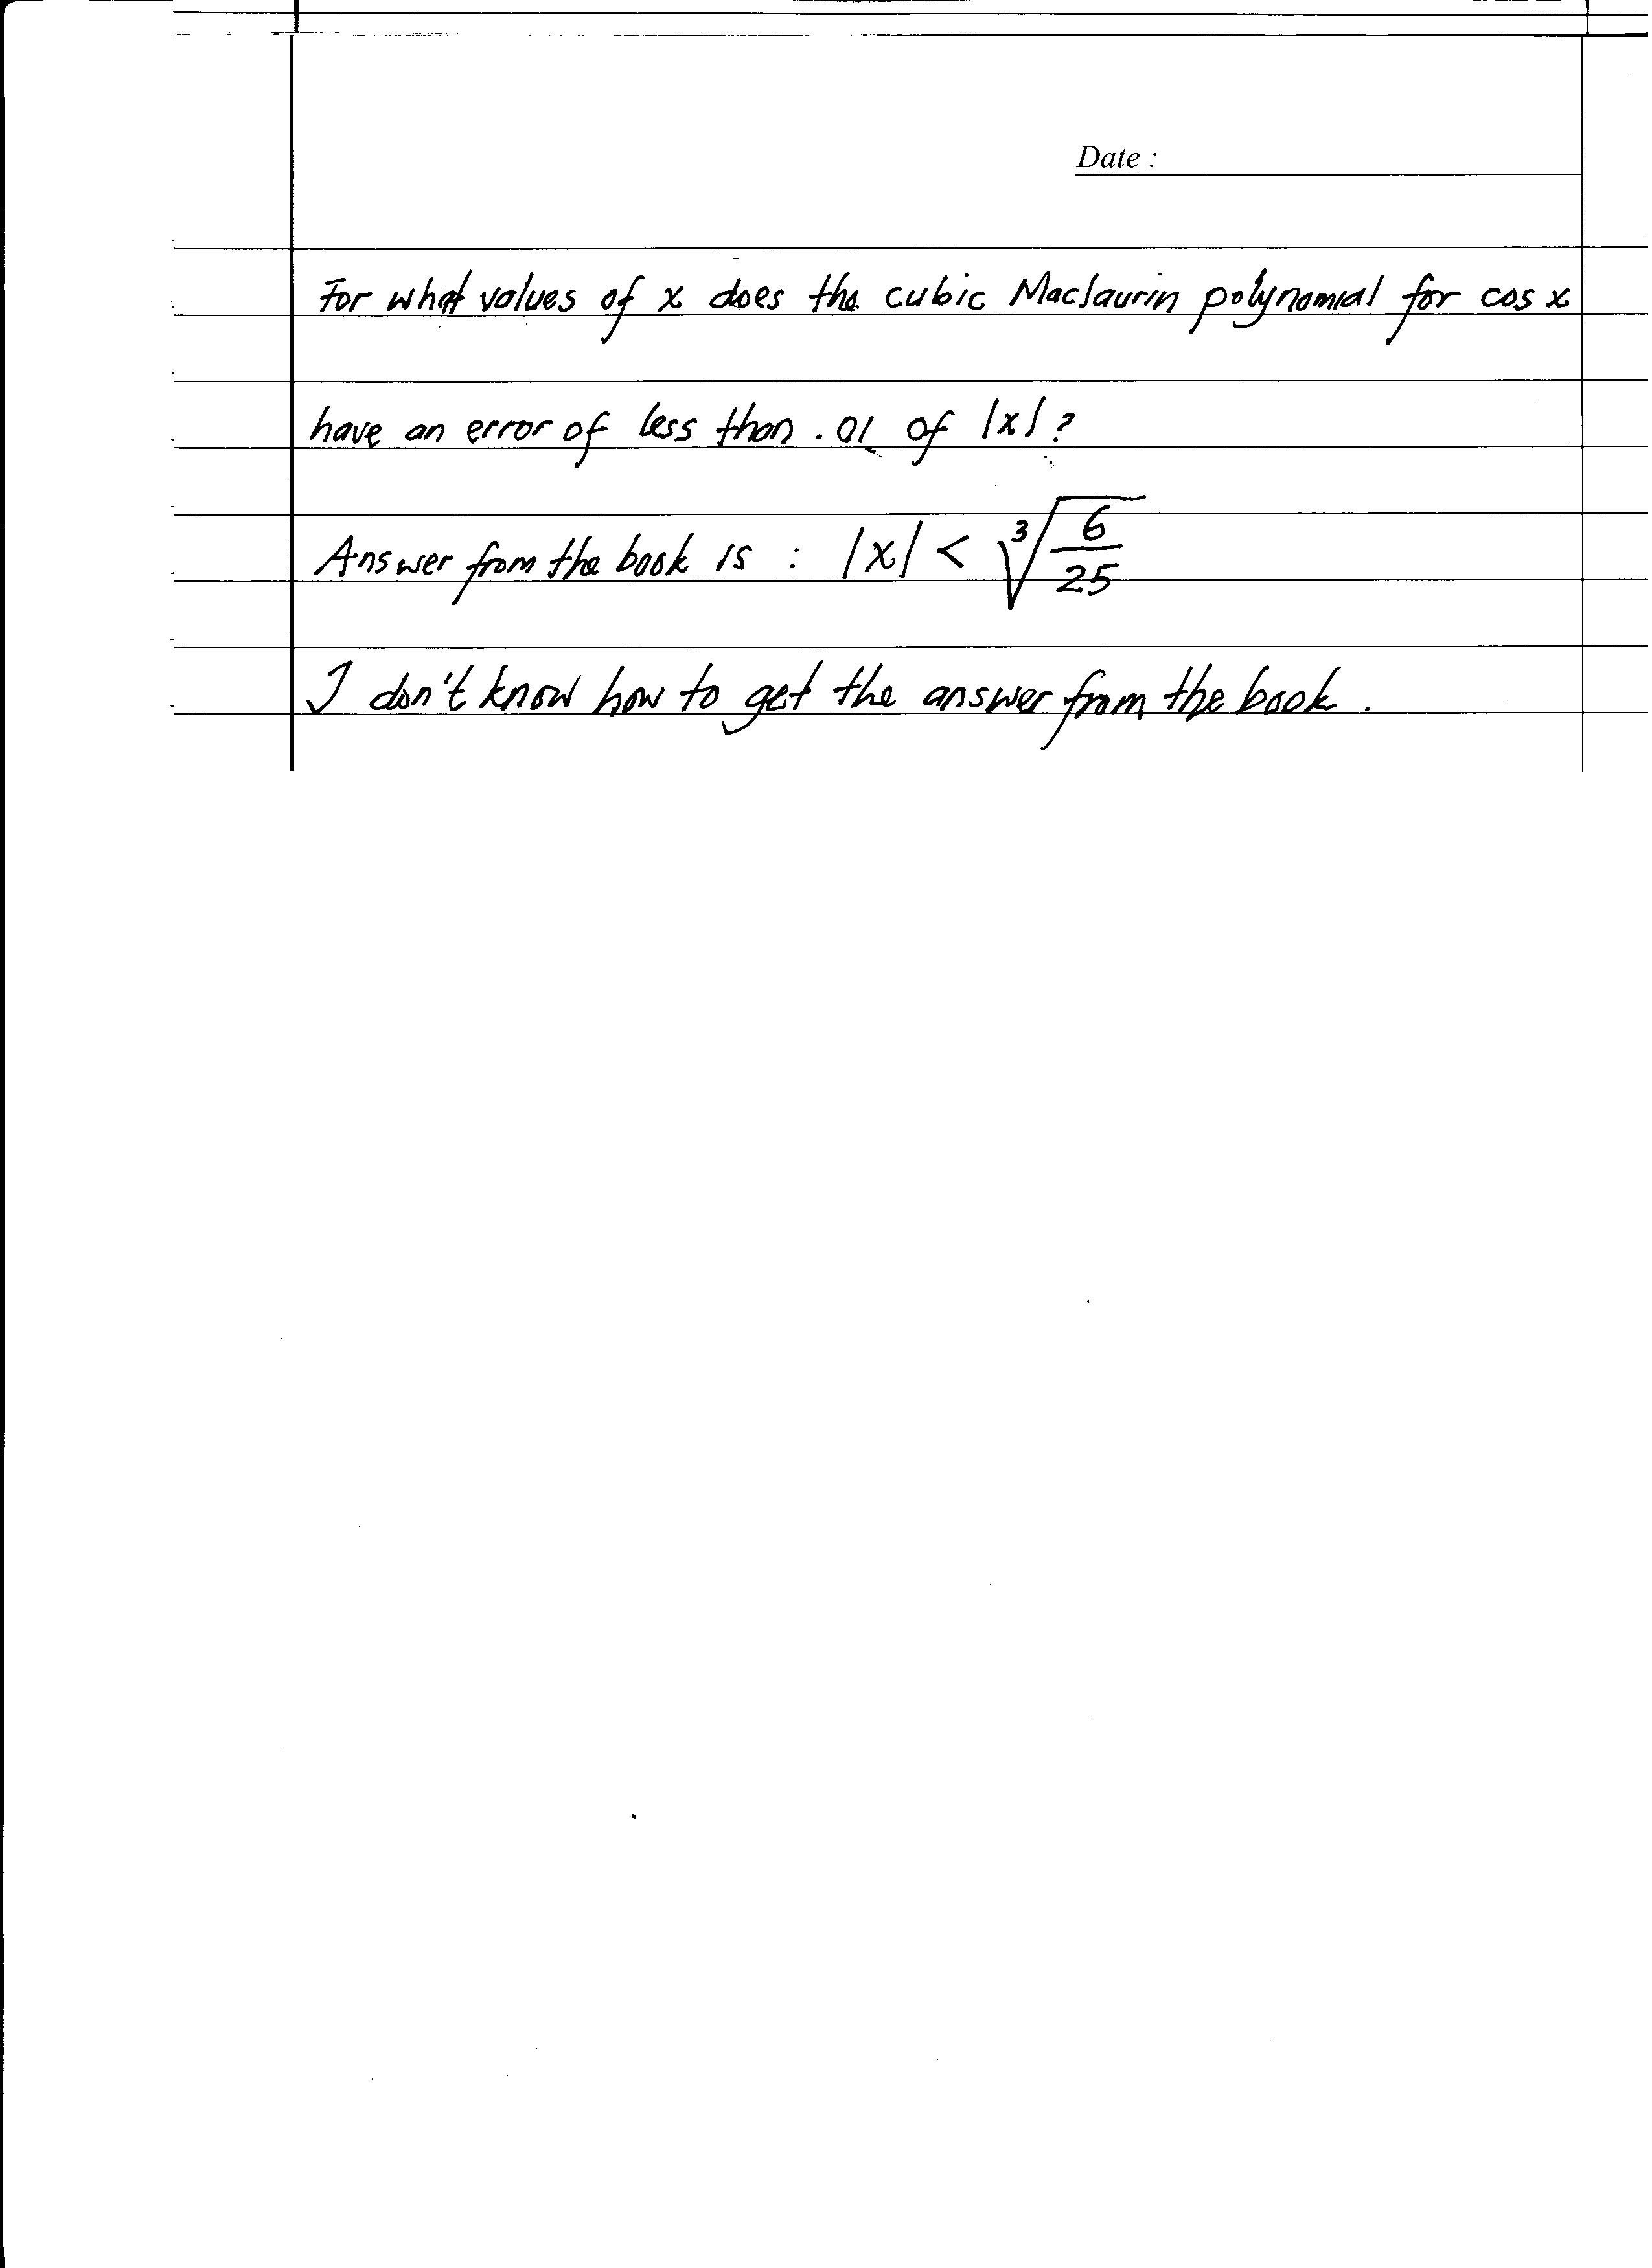 Date :
For what values of x does the cubic Maclaurin polynomial for cos x
have an error of less than .01 of |x| ?
Answer from the book is : |x| < ∛(6/25)
I don't know how to get the answer from the book .